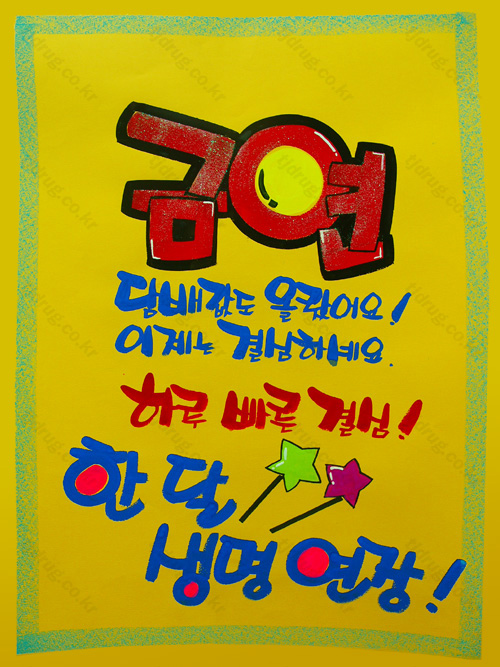 금연
담배값도 올랐어요!
이제는 결심하세요.
하루 빠른 결심!
한 달
생명 연장!
tjdrug.co.kr